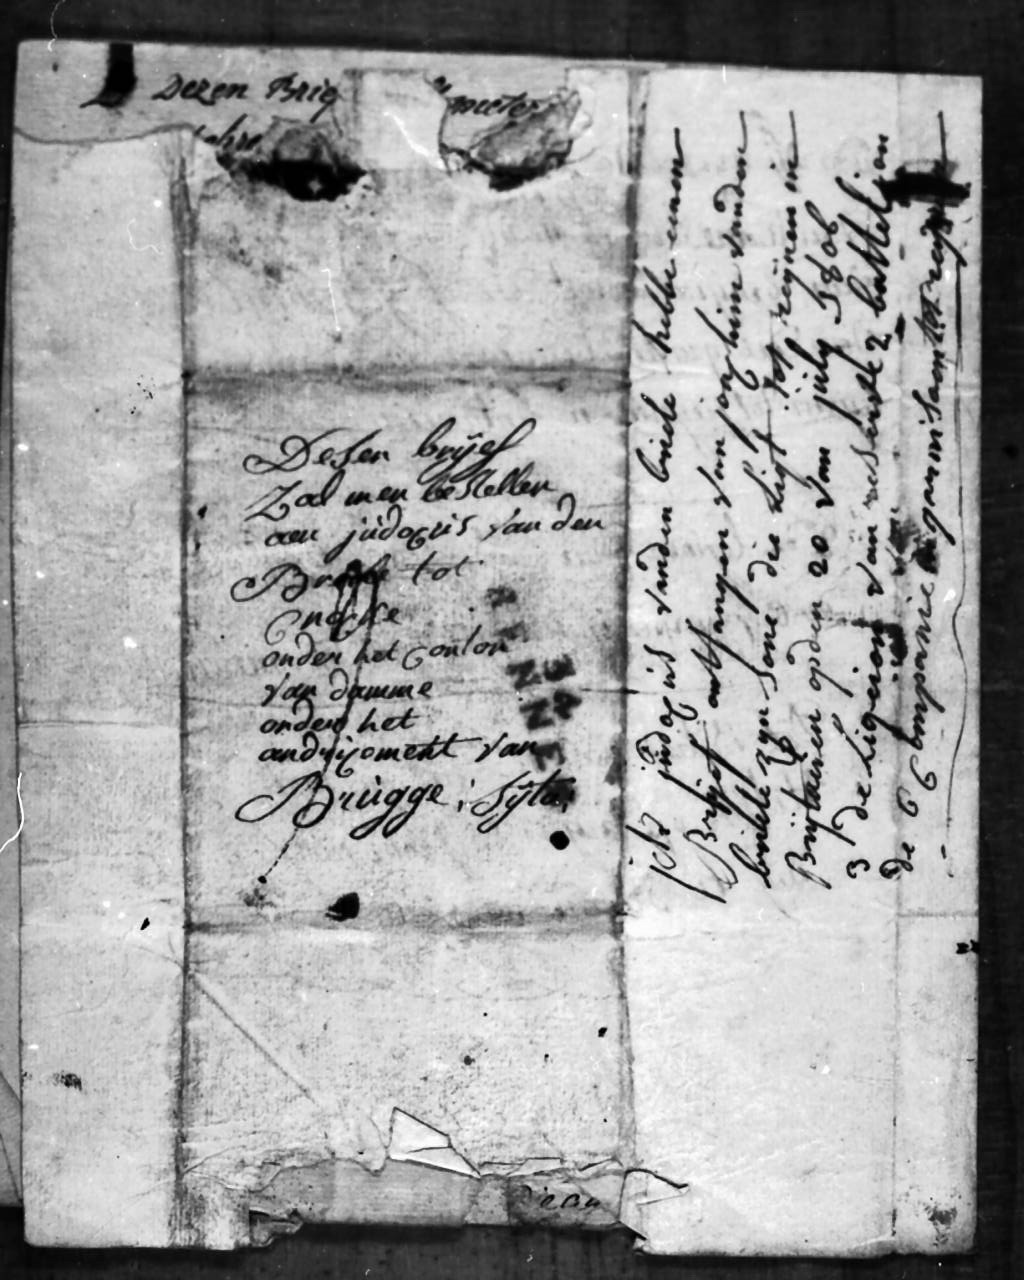 Dezen Brie
meeter
Desen brijef
Zal men bestellen
aen judocus van den
Broele tot
Cnocke
onder het Conton
van damme
onder het
andryiement van
Brugge; Cijto;
34
ick judocus vanden briele hebbe eenen
Brijef ontfangen van josephim vanden
briele zyn sone die ligt tot reijnen in
Brijtanien opden 20 van july 1806
3 de ligeion van reserve 2 battelion
de 6 Compenie in garnisaen tot